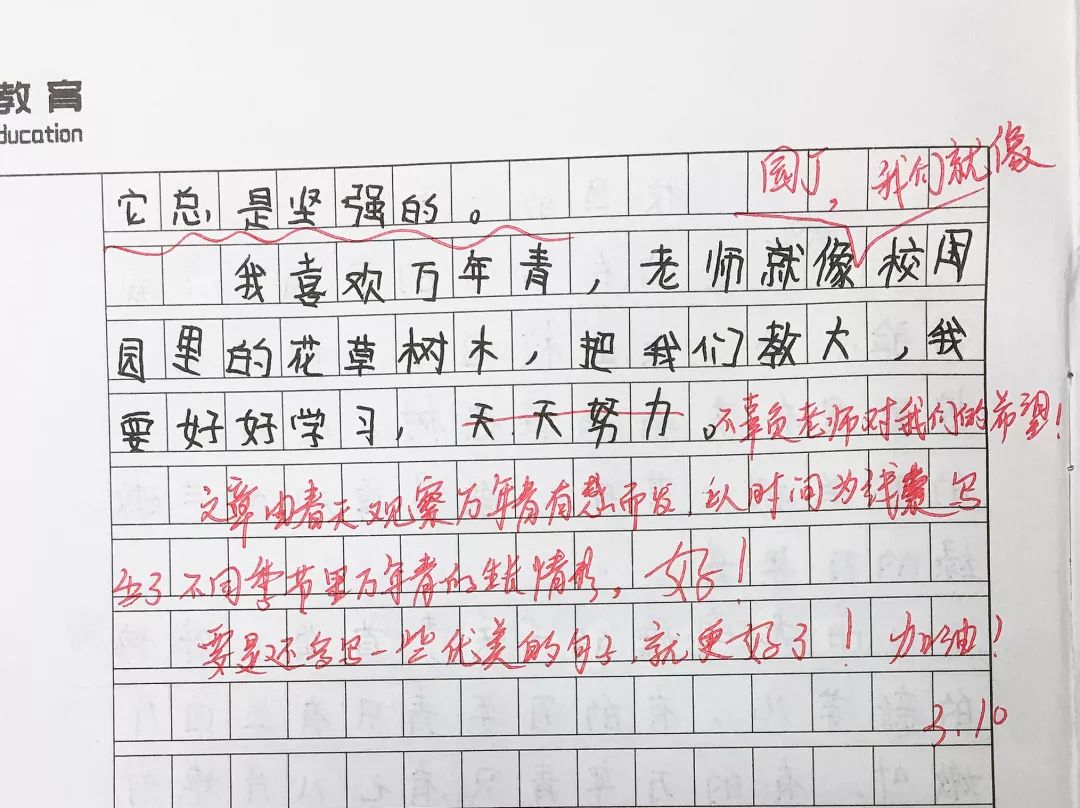 教育
ducation
园丁，我们就像
它总是坚强的。
我喜欢万年青，老师就像校园
园里的花草树木，把我们教大，我
要好好学习，天天努力。不辜负老师对我们的希望！
文章由春天观察万年青有感而发，以时间为线索写
出了不同季节里万年青的生长情形，好！
要是还多写一些优美的句子，就更好了！加油！
3.10